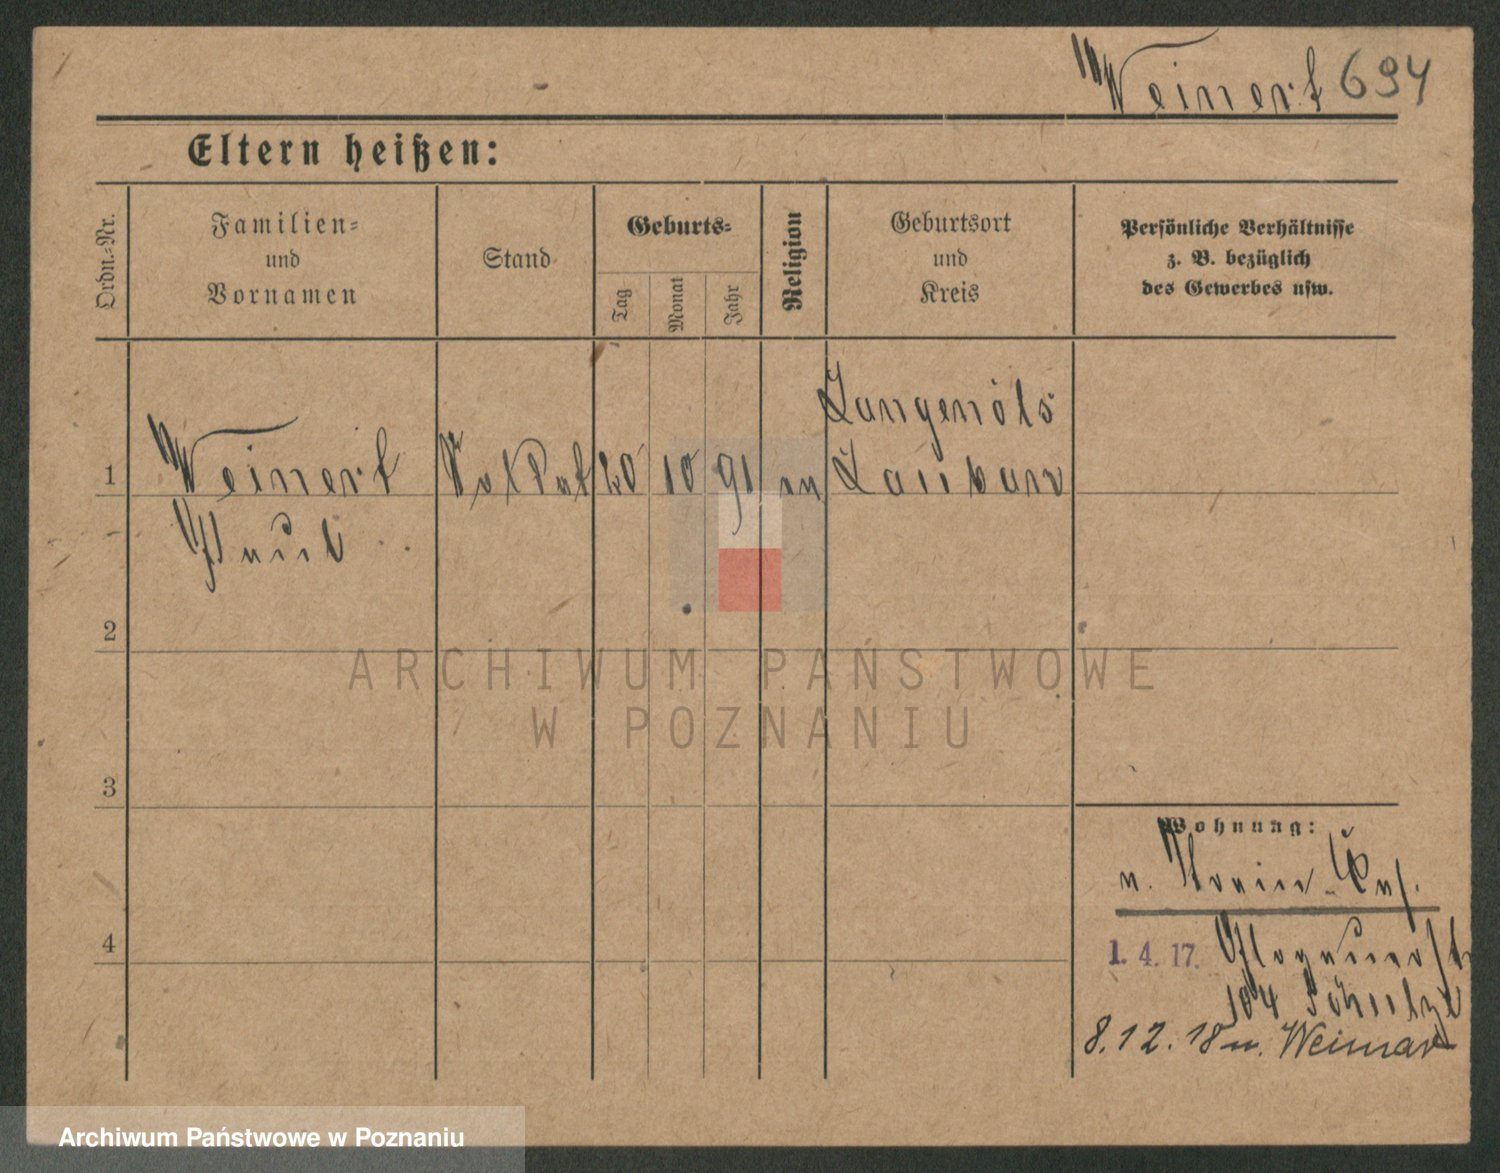 Weinert 694
Eltern heißen:
Ordn.-Nr.
Familien-
und
Vornamen
Stand
Geburts-
Tag
Monat
Jahr
Religion
Geburtsort
und
Kreis
Persönliche Verhältnisse
z. B. bezüglich
des Gewerbes usw.
Langenöls
1 Weinert Soldat 20 10 91 Lauban
Paul
2
ARCHIWUM PAŃSTWOWE
W POZNANIU
3
Wohnung:
n.
4
1. 4. 17. Glogauerstr
104 Schulze
8.12.18 n. Weimar
Archiwum Państwowe w Poznaniu